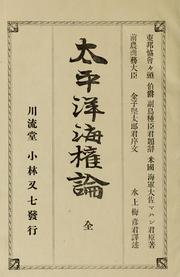 東邦協會々頭 伯爵 副島種臣君題辭 米國海軍大佐マハン君原著
前農商務大臣 金子堅太郎君序文 水上梅彦君譯述
太平洋海權論 全
川流堂 小林又七發行